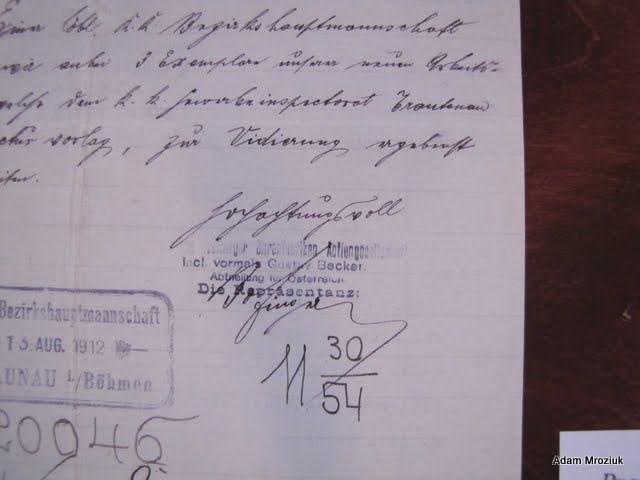 Einer löbl. k. k. Bezirkshauptmannschaft
anbei 3 Exemplare unserer neuen Arbeits-
welche dem k. k. Gewerbeinspectorat Trautenau
vorlag, zur Vidierung ergebenst
Hochachtungsvoll
Uhrenfabriken Actiengesellschaft
incl. vormals Gustav Becker.
Abteilung für Österreich
Die Repräsentanz:
Bezirkshauptmannschaft
13. AUG. 1912
AUNAU i./Böhmen
11 30
54
20046
Adam Mroziuk